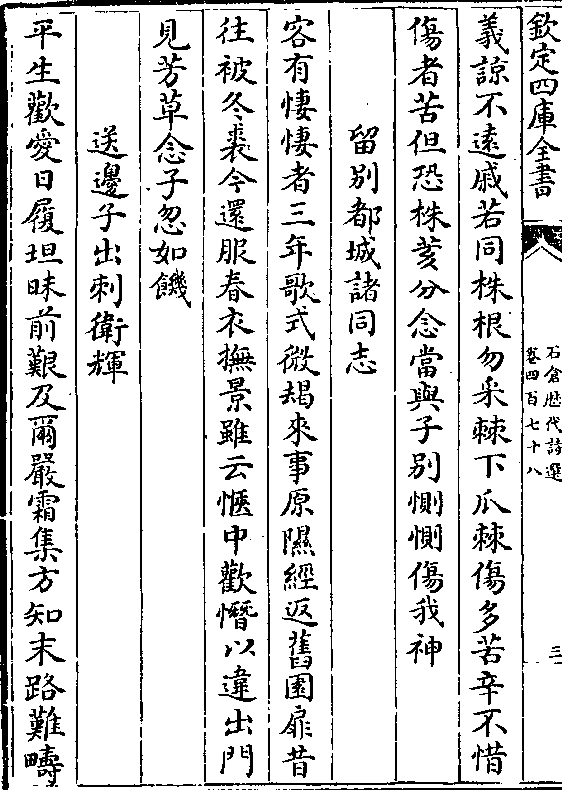 欽定四庫全書
石倉歷代詩選
卷四百七十八
三
義諒不遠戚若同株根勿采棘下瓜棘傷多苦辛不惜
傷者苦但恐株荄分念當與子别惻惻傷我神
留别都城諸同志
容有悽悽者三年歌式微朅來事原隰經返舊園扉昔
往被冬裘今還服春衣撫景雖云愜中歡憯以違出門
見芳草念子忽如饑
送邊子出刺衛輝
平生歡愛日履坦昧前艱及爾嚴霜集方知末路難疇